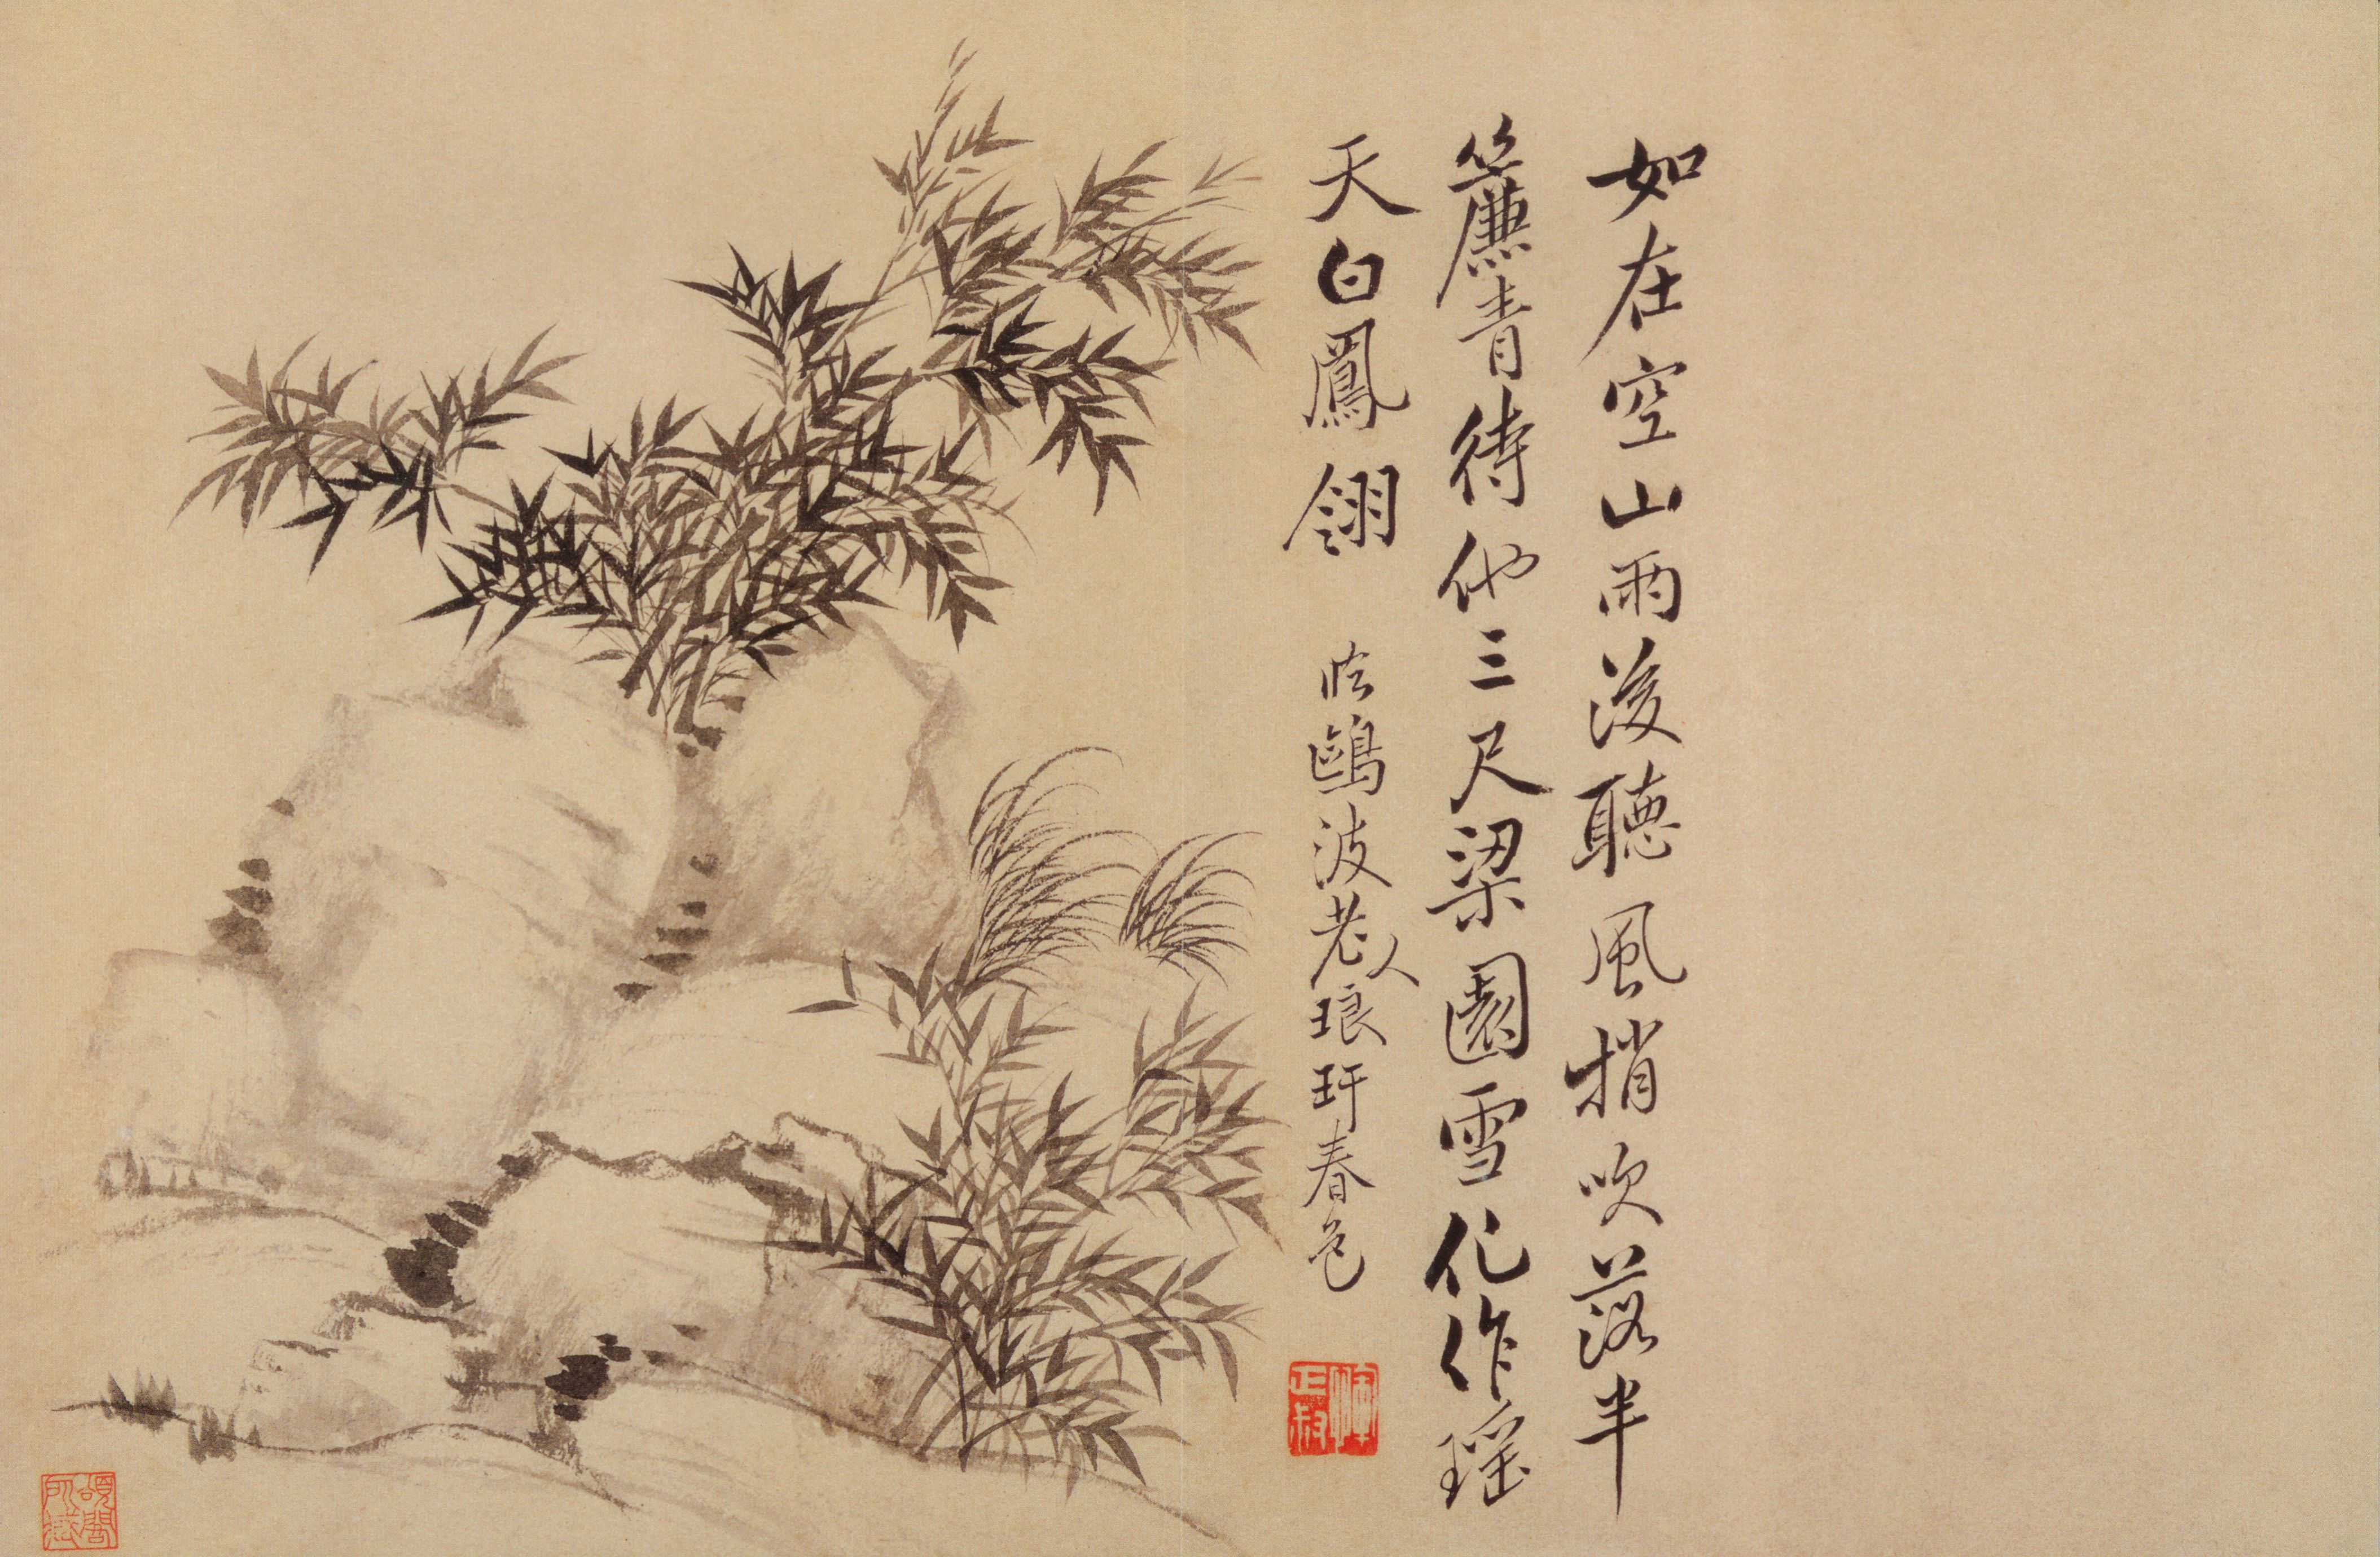 如在空山雨後聽風梢吹落半
簾青待他三尺梁園雪化作瑶
天白鳳翎
临鷗波老人琅玕春色
惲正叔
頌閣所藏